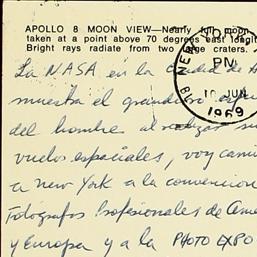 APOLLO 8 MOON VIEW—Nearly full moon
taken at a point above 70 degrees east longi
Bright rays radiate from two large craters.
NEW YORK
PM
10 JUN
1969
La NASA en la ciudad de
muestra el grandioso
del hombre al realizar su
vuelos espaciales, voy cami
a New York a la convencion
Fotógrafos Profesionales de Ame
y Europa y a la PHOTO EXPO